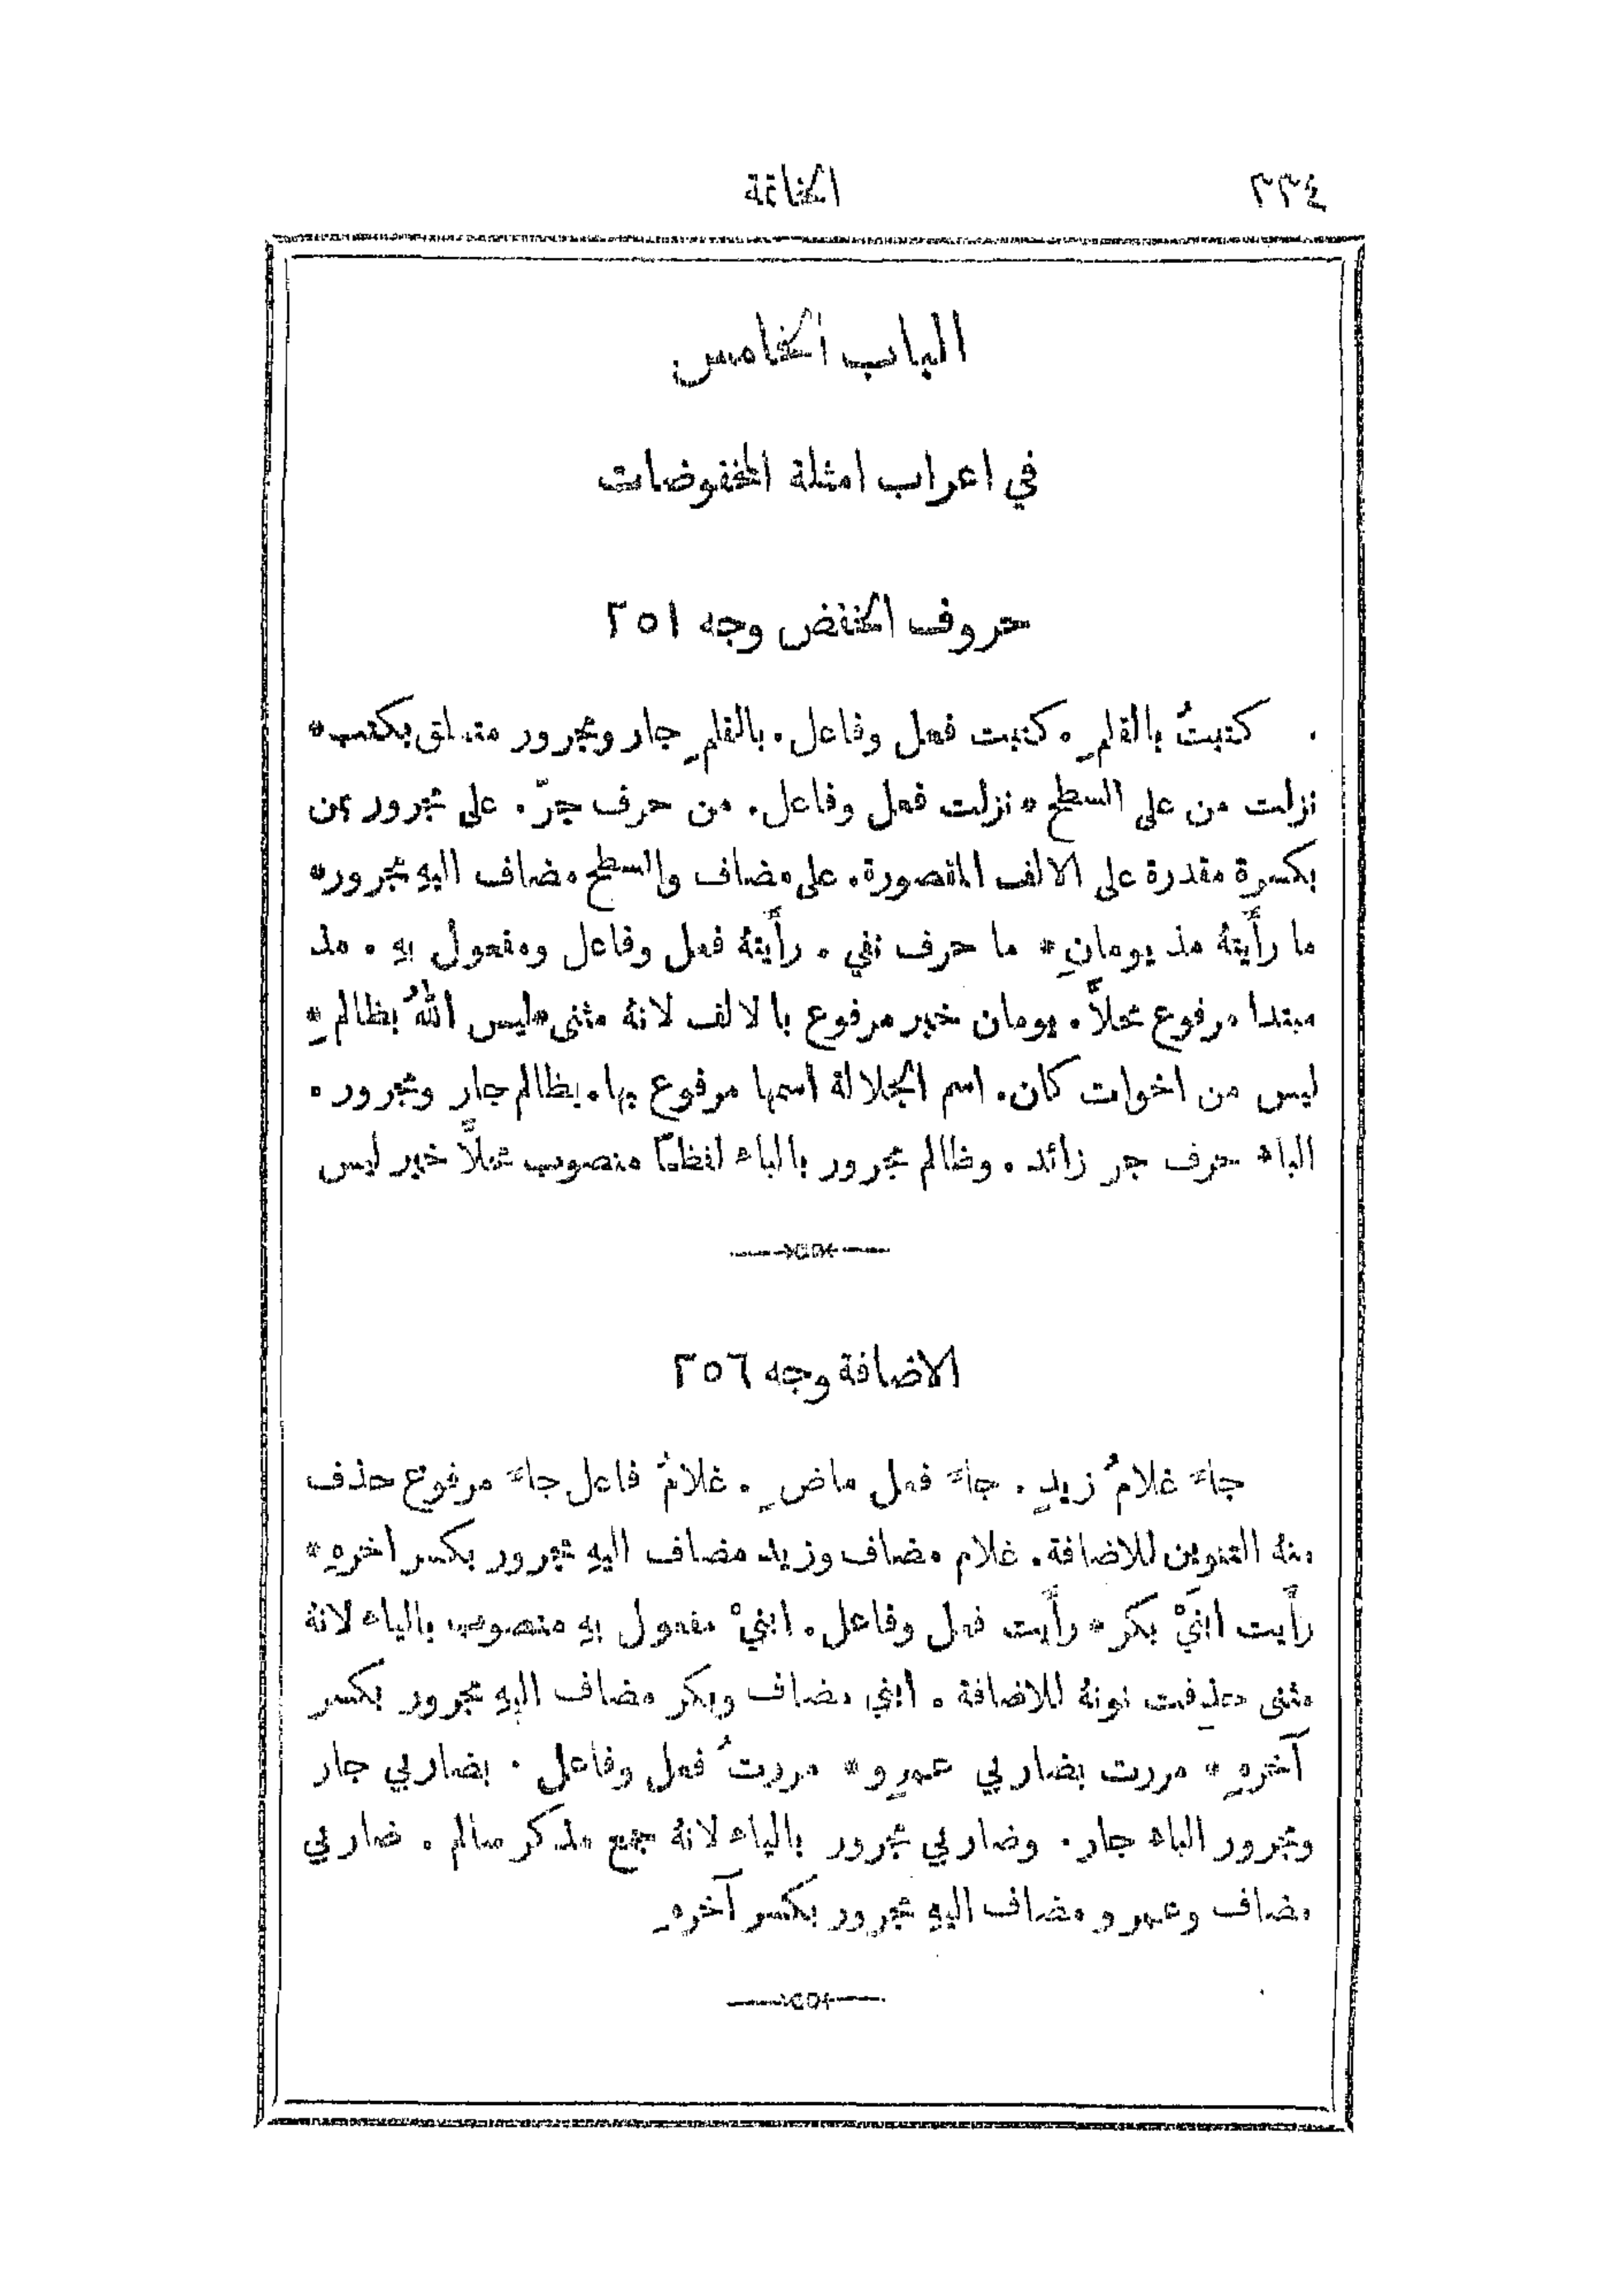 ٣٣٤ الخاتمة
الباب الخامس
في اعراب امثلة المخفوضات
حروف الخفض وجه ٢٥١
كتبتُ بالقلمِ . كتبت فعل وفاعل . بالقلمِ جار ومجرور متعلق بكتب *
نزلت من على السطح * نزلت فعل وفاعل . من حرف جرّ . على مجرور بمن
بكسرة مقدرة على الالف المقصورة . على مضاف والسطح مضاف اليهِ مجرور *
ما رأَيتهُ مذ يومانِ * ما حرف نفي . رأَيتهُ فعل وفاعل ومفعول بهِ . مذ
مبتدا مرفوع محلاًّ . يومان خبر مرفوع بالالف لانهُ مثنى * ليس اللهُ بظالمٍ *
ليس من اخوات كان . اسم الجلالة اسمها مرفوع بها . بظالم جار ومجرور .
الباء حرف جر زائد . وظالم مجرور بالباء لفظاً منصوب محلاًّ خبر ليس
الاضافة وجه ٢٥٦
جاءَ غلامُ زيدٍ . جاءَ فعل ماضٍ . غلامُ فاعل جاءَ مرفوع حذف
منهُ التنوين للاضافة . غلام مضاف وزيد مضاف اليهِ مجرور بكسر اخرهِ *
رأَيت ابنَيْ بكر * رأَيت فعل وفاعل . ابنيْ مفعول بهِ منصوب بالياء لانهُ
مثنى حذِفت نونهُ للاضافة . ابني مضاف وبكر مضاف اليهِ مجرور بكسر
آخرهِ * مررت بضاربي عمرٍو * مررتُ فعل وفاعل . بضاربي جار
ومجرور الباء جار . وضاربي مجرور بالياء لانهُ جمع مذكر سالم . ضاربي
مضاف وعمرو مضاف اليهِ مجرور بكسر آخرهِ